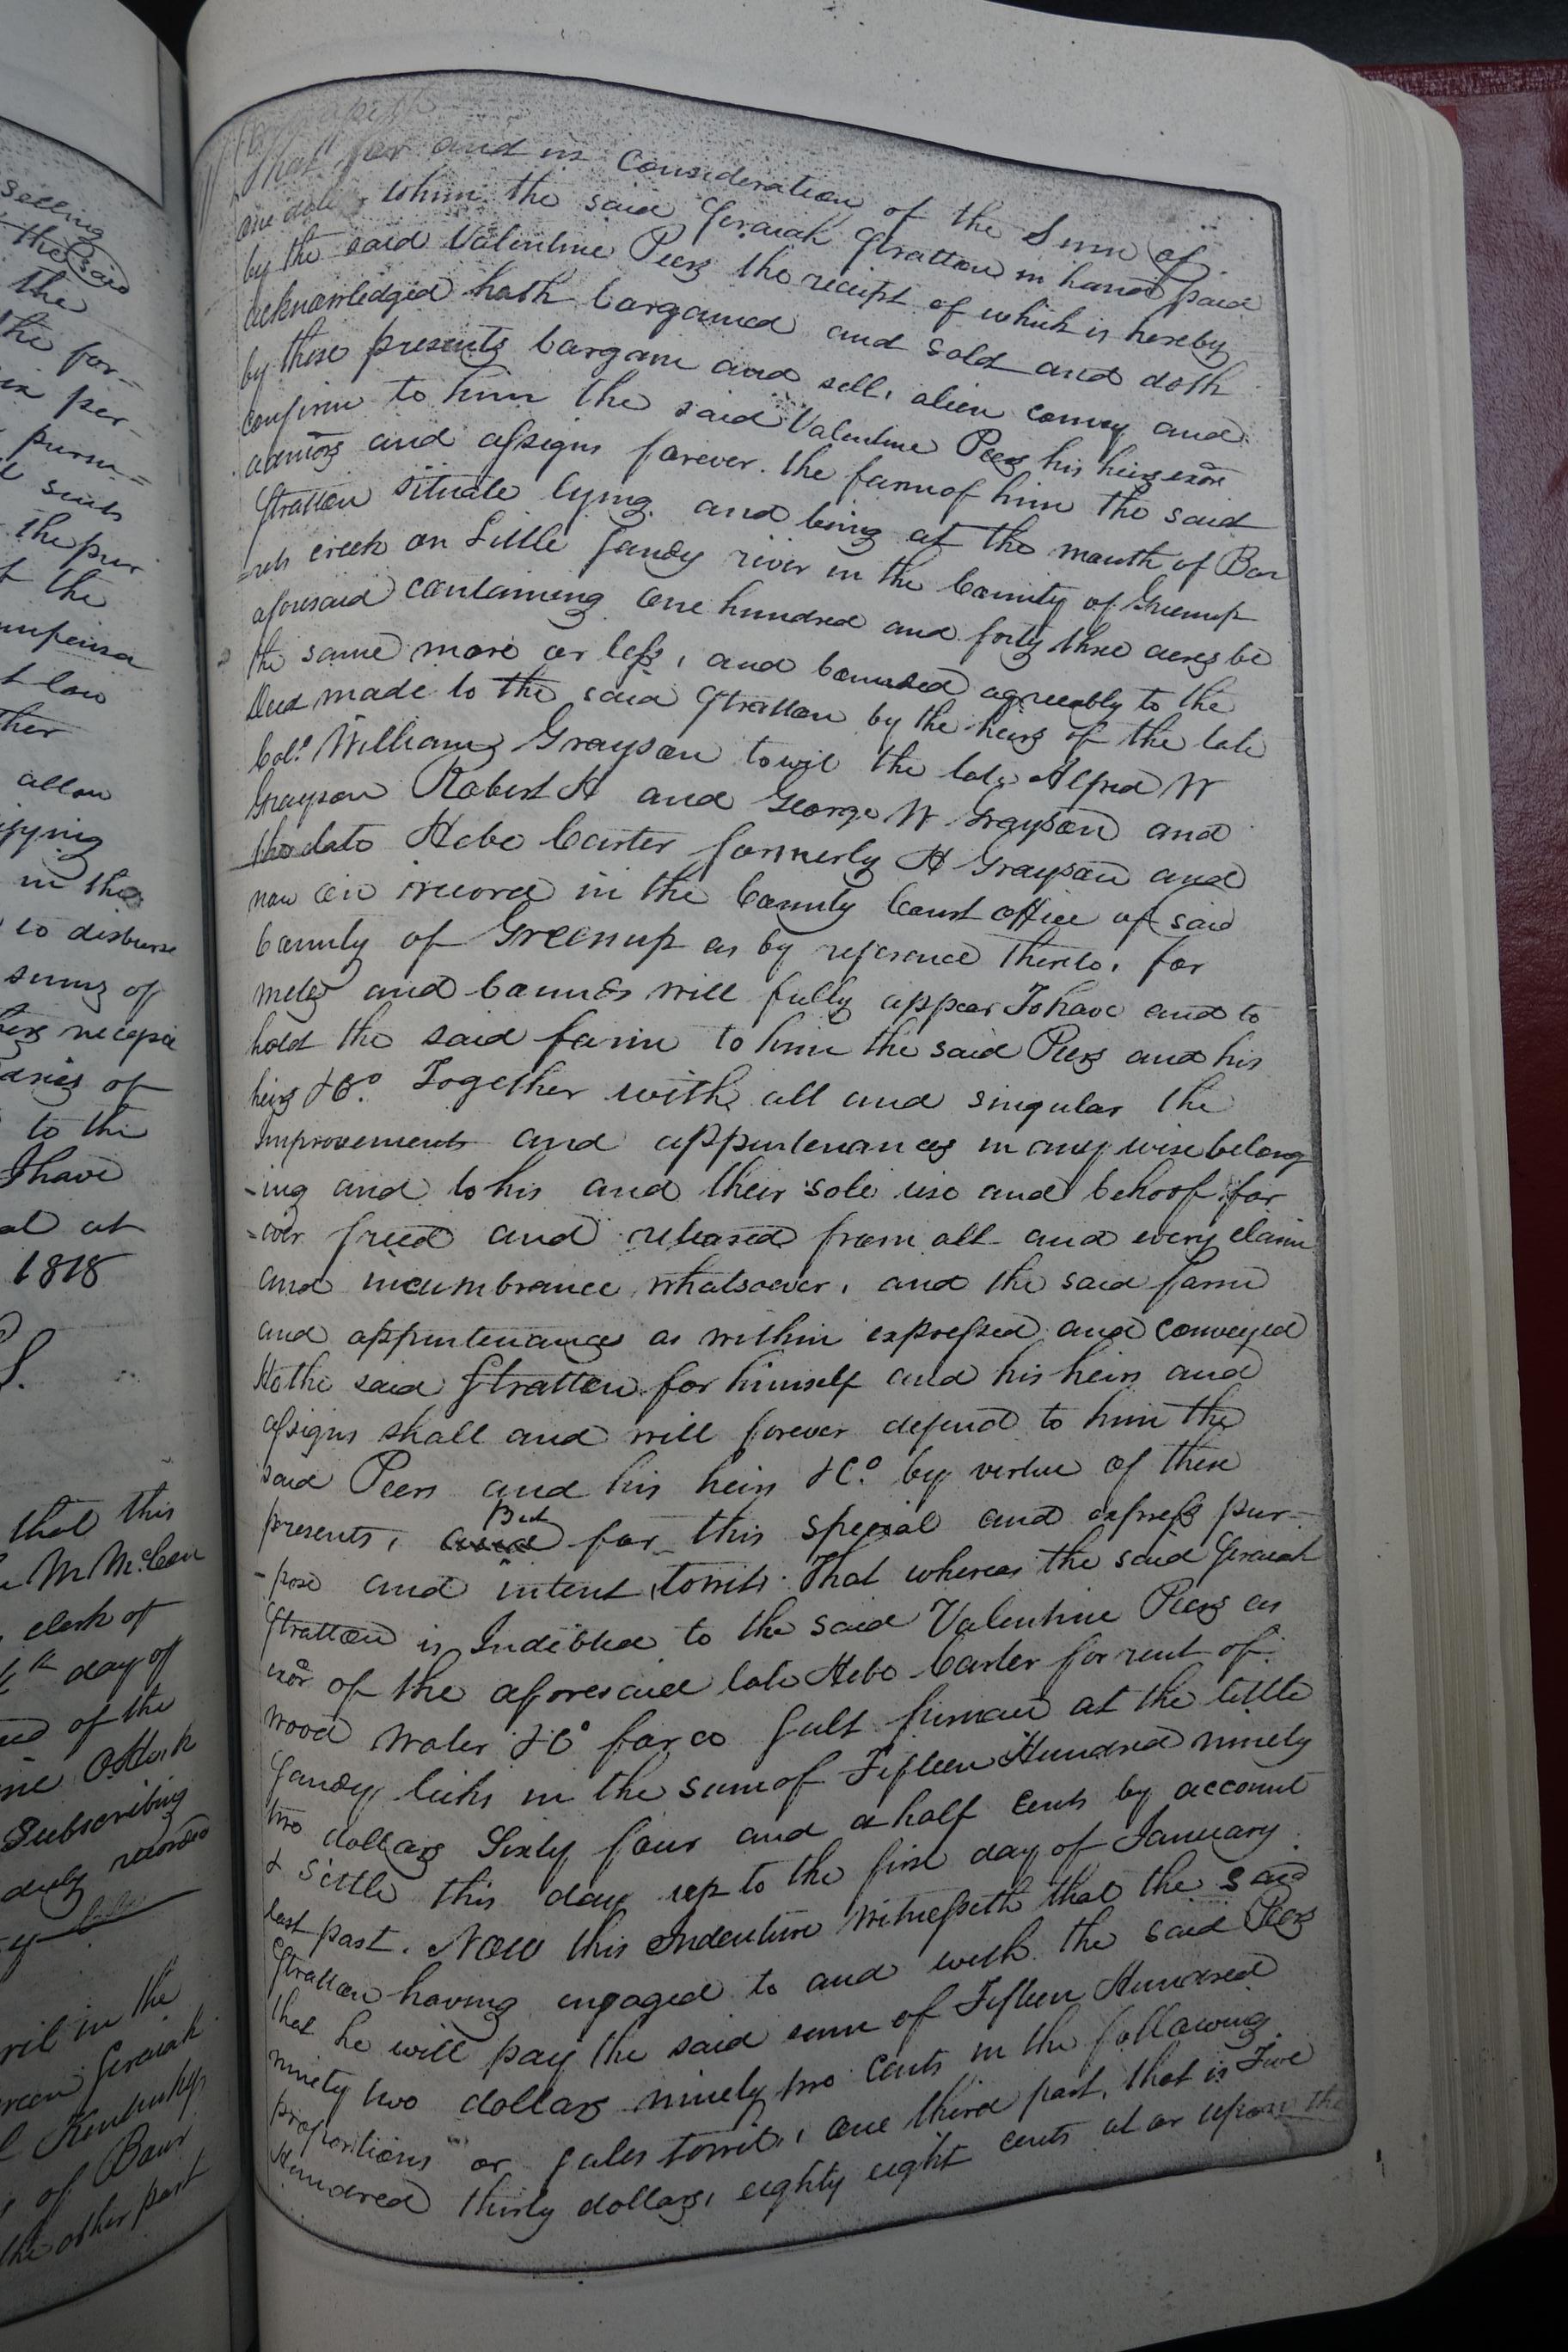 selling
the said
the
the for=
in per-
pursu=
suits
the pur
of the
t law
ther
allow
ifying
in the
to disburse
sums of
of
to the
I have
al at
1818
that this
M. McCon
clerk of
day of
of the
Subscribing
duly
in the
Jeraiah
Kentucky
of Barr
the other part
That for and in consideration of the Sum of
one dollar to him the said Jeraiah Stratton in hand paid
by the said Valentine Peers the receipt of which is hereby
acknowledged hath bargained and sold and doth
by these presents bargain and sell, alien convey and
confirm to him the said Valentine Peers his heirs exõrs
adminõrs and assigns forever. the farm of him the said
Stratton situate lying and being at the mouth of Bar
=rets creek on Little Sandy river in the County of Greenup
aforesaid containing one hundred and forty three acres be
the same more or less, and bounded agreeably to the
Deed made to the said Stratton by the heirs of the late
Colº William Grayson towit the late Alfred W
Grayson Robert H and George W Grayson and
the late Hebe Carter formerly H Grayson and
now on record in the County Court office of said
County of Greenup as by reference thereto, for
metes and bounds will fully appear To have and to
hold the said farm to him the said Peers and his
heirs &Cº. Together with all and singular the
Improvements and appurtenances in any wise belong
-ing and to his and their sole use and behoof for
=ever freed and released from all and every claim
and incumbrance whatsoever, and the said farm
and appurtenances as within expressed and conveyed
He the said Stratton for himself and his heirs and
assigns shall and will forever defend to him the
said Peers and his heirs &Cº. by virtue of these
presents, and But for this special and express pur-
-pose and intent, towit. That whereas the said Jeraiah
Stratton is Indebted to the said Valentine Peers as
exõr of the aforesaid late Hebe Carter for rent of
wood water &Cº for a Salt furnace at the little
Sandy licks in the sum of Fifteen Hundred ninety
two dollars Sixty four and a half cents by account
& Settle this day up to the first day of January
last past. Now this Indenture Witnesseth that the said
Stratton having engaged to and with the said Peers
that he will pay the said sum of Fifteen Hundred
ninety two dollars ninety two cents in the following
proportions or gales towit, one third part, that is Five
Hundred thirty dollars, eighty eight cents at or upon the